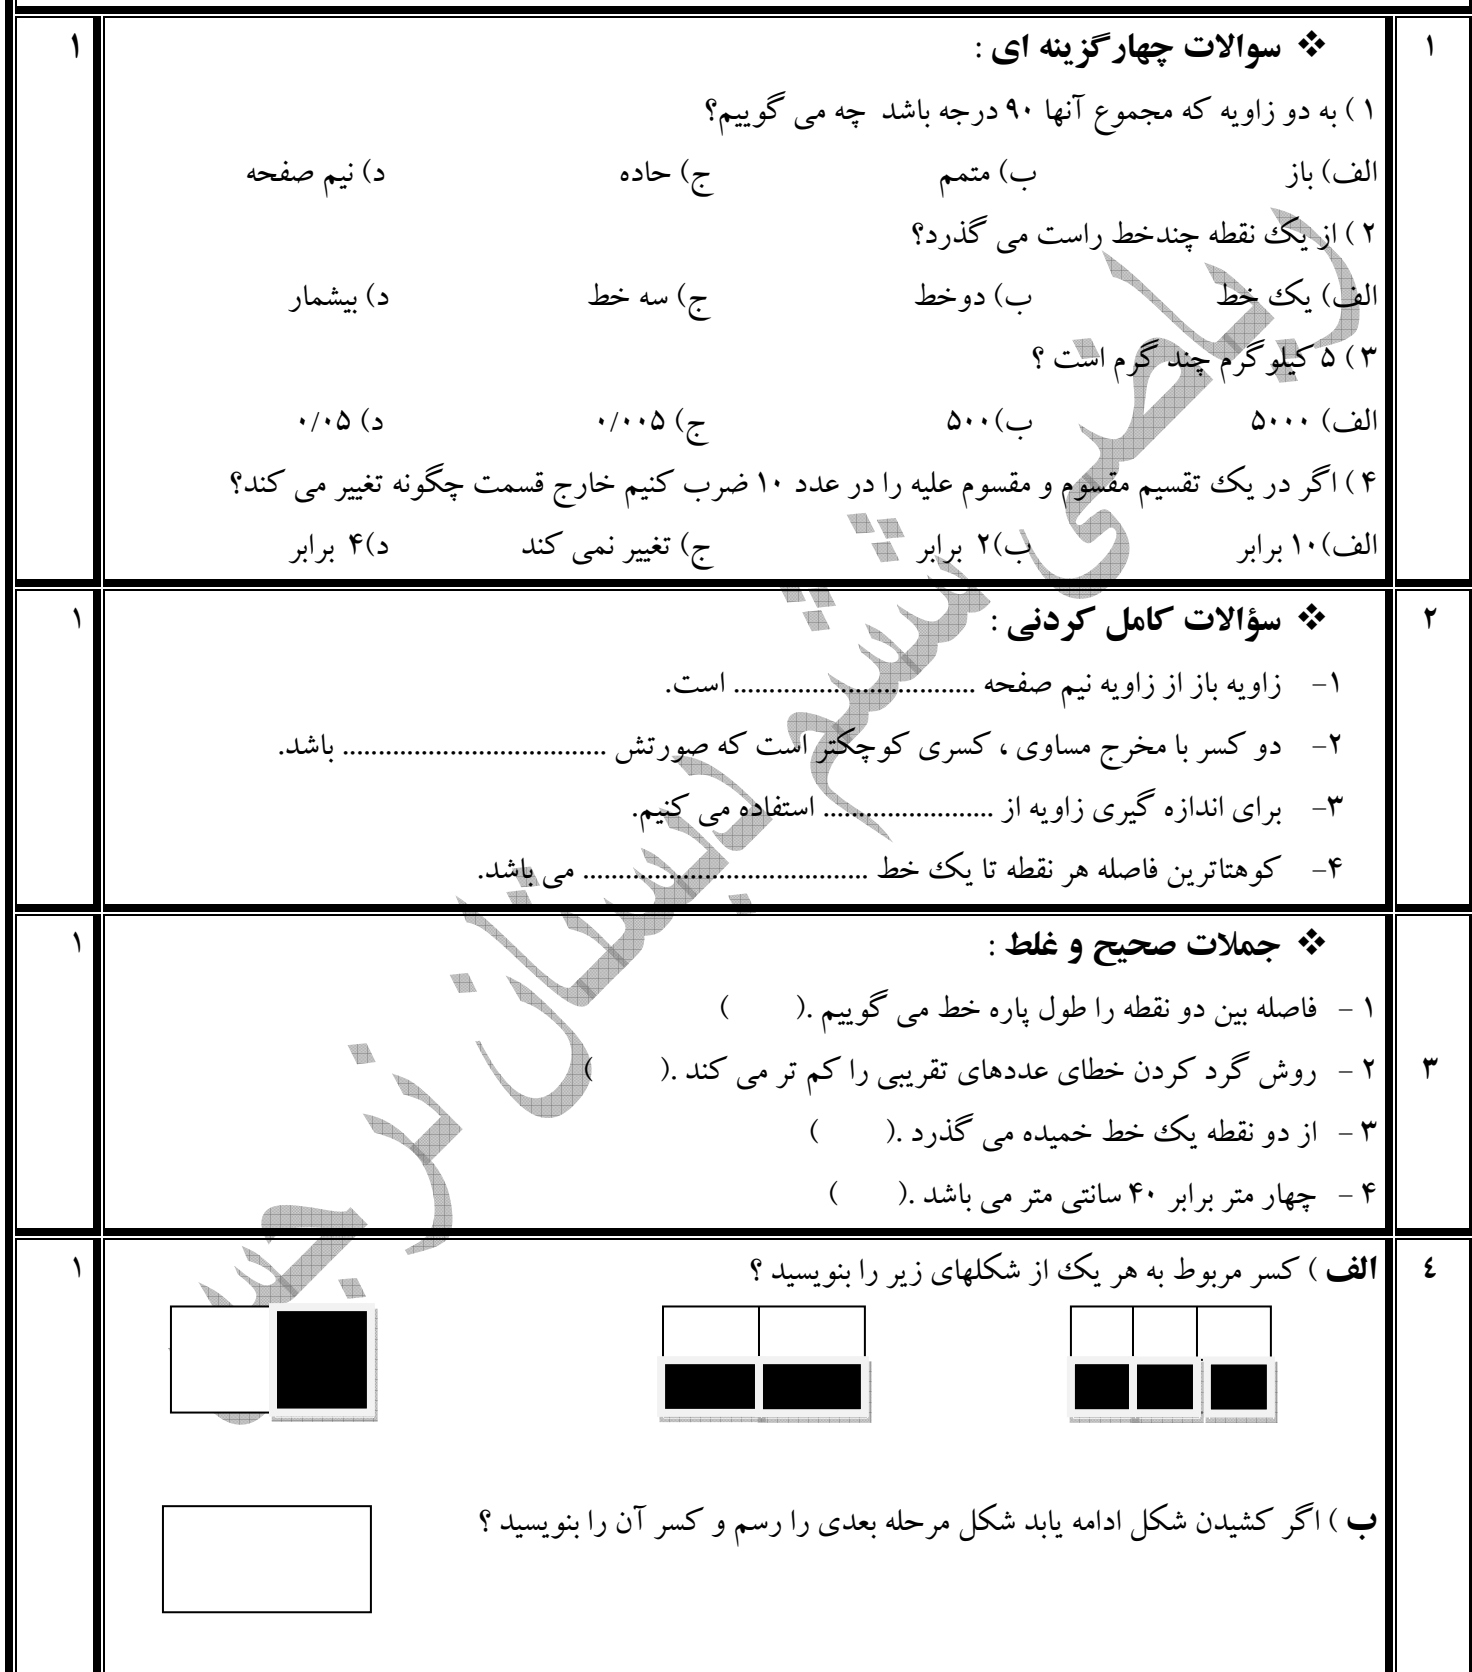 ۱
❖ سوالات چهارگزینه ای :
۱
۱ ) به دو زاویه که مجموع آنها ۹۰ درجه باشد چه می گوییم؟
الف) باز ب) متمم ج) حاده د) نیم صفحه
۲ ) از یک نقطه چندخط راست می گذرد؟
الف) یک خط ب) دوخط ج) سه خط د) بیشمار
۳ ) ۵ کیلوگرم چند گرم است ؟
الف) ۵۰۰۰ ب)۵۰۰ ج) ۰/۰۰۵ د) ۰/۰۵
۴ ) اگر در یک تقسیم مقسوم و مقسوم علیه را در عدد ۱۰ ضرب کنیم خارج قسمت چگونه تغییر می کند؟
الف)۱۰ برابر ب)۲ برابر ج) تغییر نمی کند د)۴ برابر
۲
❖ سؤالات کامل کردنی :
۱
۱- زاویه باز از زاویه نیم صفحه .................................. است.
۲- دو کسر با مخرج مساوی ، کسری کوچکتر است که صورتش ..................................... باشد.
۳- برای اندازه گیری زاویه از ........................ استفاده می کنیم.
۴- کوهتاترین فاصله هر نقطه تا یک خط ........................................ می باشد.
❖ جملات صحیح و غلط :
۱
۱ - فاصله بین دو نقطه را طول پاره خط می گوییم .( )
۳
۲ - روش گرد کردن خطای عددهای تقریبی را کم تر می کند .( )
۳ - از دو نقطه یک خط خمیده می گذرد .( )
۴ - چهار متر برابر ۴۰ سانتی متر می باشد .( )
٤
الف ) کسر مربوط به هر یک از شکلهای زیر را بنویسید ؟
۱
ب ) اگر کشیدن شکل ادامه یابد شکل مرحله بعدی را رسم و کسر آن را بنویسید ؟
ریاضی ششم دبستان نرجس